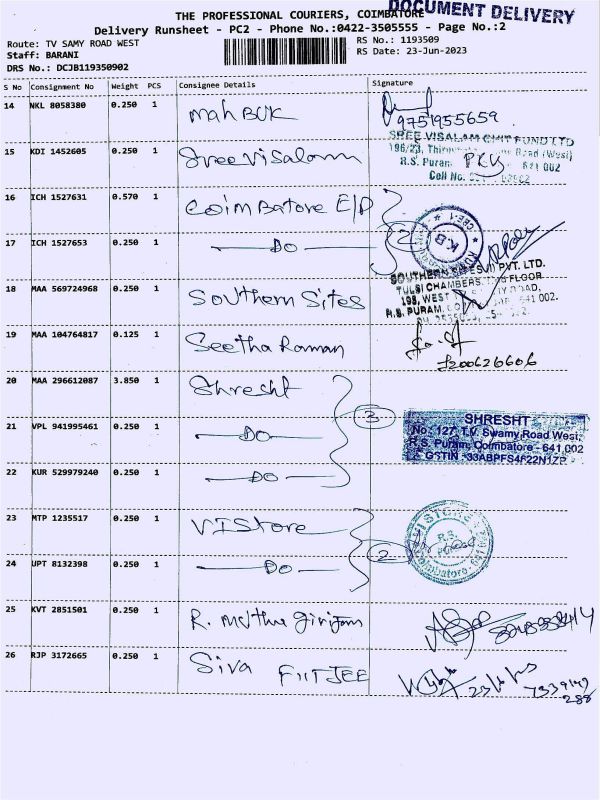 THE PROFESSIONAL COURIERS, COIMBATORE
DOCUMENT DELIVERY
Delivery Runsheet - PC2 - Phone No.:0422-3505555 - Page No.:2
Route: TV SAMY ROAD WEST
RS No.: 1193509
Staff: BARANI
RS Date: 23-Jun-2023
DRS No.: DCJB119350902
S No Consignment No Weight PCS Consignee Details Signature
14 NKL 8058380 0.250 1 Mah BUK
9751955659
SREE VISALAM CHIT FUND LTD
15 KDI 1452605 0.250 1 Sree Visalam
196/23, Road (West)
R.S. Puram 641 002
Cell No.
16 ICH 1527631 0.570 1 Coimbatore E/D
17 ICH 1527653 0.250 1 DO 2
K.B
SOUTHERN SITES(I) PVT. LTD.
TULSI CHAMBERS, FLOOR
18 MAA 569724968 0.250 1 Southern Sites
198, WEST ROAD,
R.S. PURAM, 641 002.
19 MAA 104764817 0.125 1 Seetha Raman
20 MAA 296612087 3.850 1 Shresht
21 VPL 941995461 0.250 1 DO 3
SHRESHT
No: 127, T.V. Swamy Road West,
R.S. Puram, Coimbatore - 641 002
GSTIN -33ABPFS4F22N1ZP
22 KUR 529979240 0.250 1 DO
23 MTP 1235517 0.250 1 VIStore
VISTORE
R.S.
Coimbatore - 641 002
24 UPT 8132398 0.250 1 DO 2
25 KVT 2851501 0.250 1 R. Muthu girijam
26 RJP 3172665 0.250 1 Siva FIITJEE
7339149
288